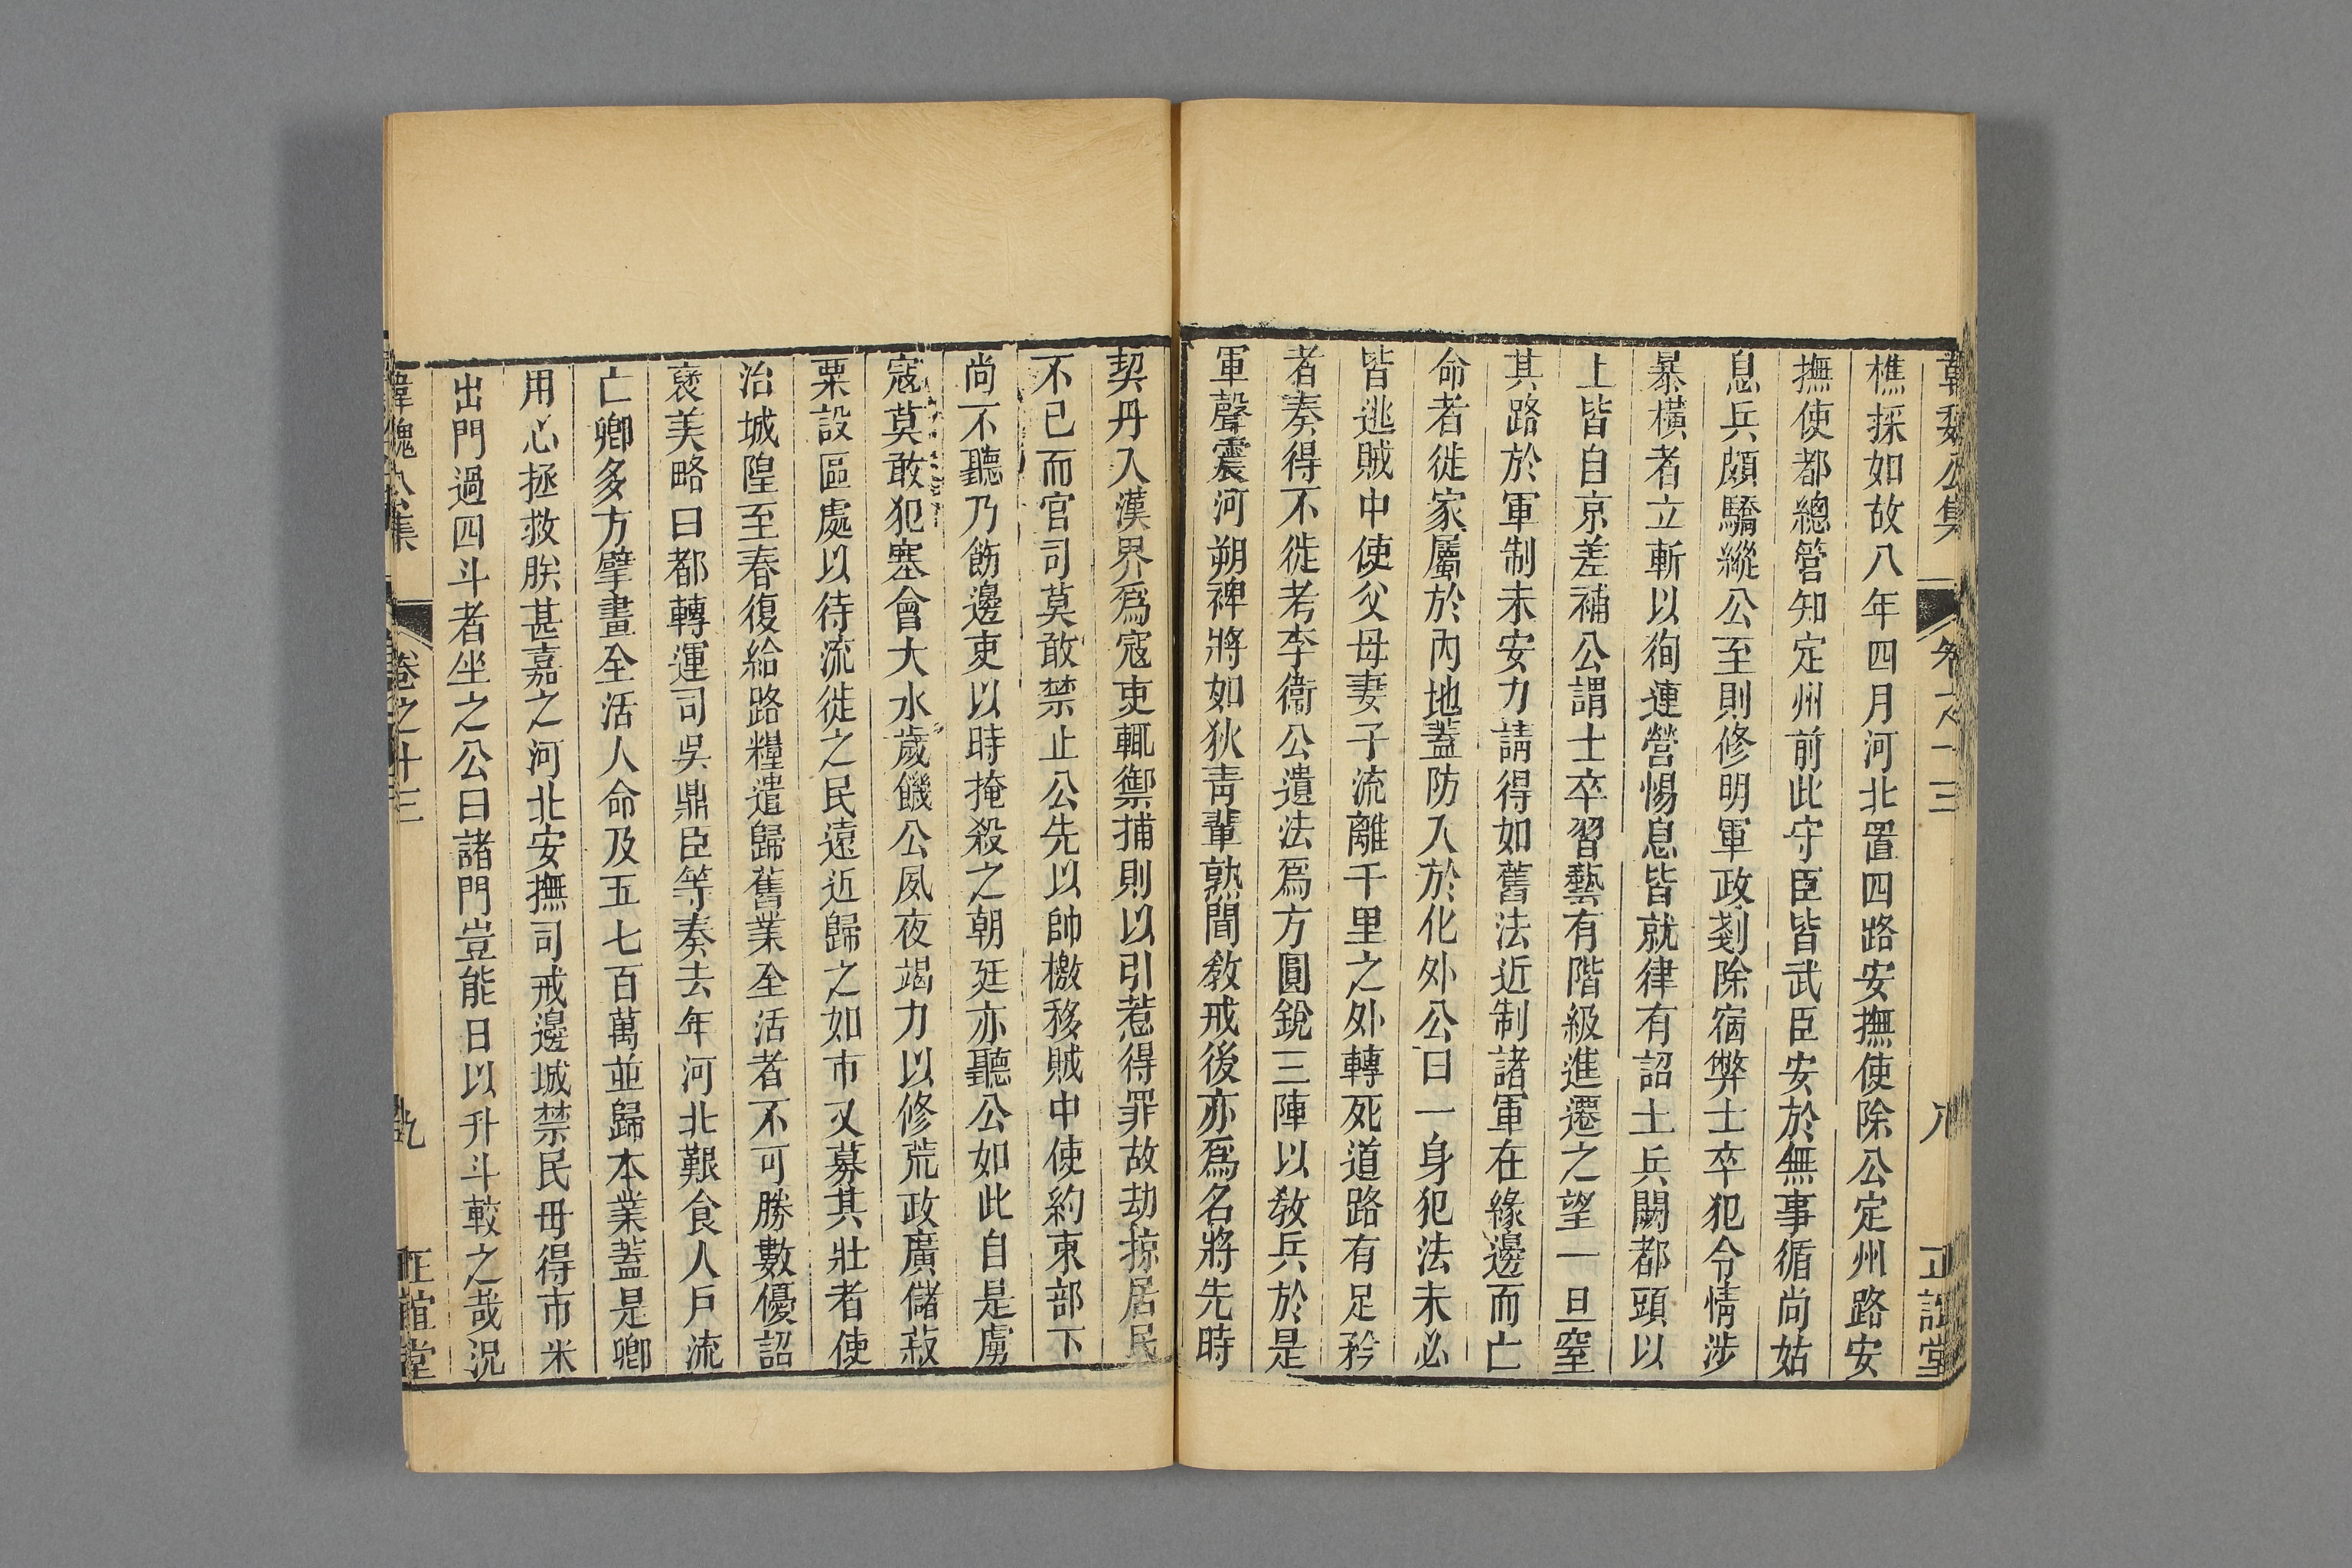 韓魏公集 卷之十三 八 正誼堂
樵採如故八年四月河北置四路安撫使除公定州路安
撫使都總管知定州前此守臣皆武臣安於無事循尚姑
息兵頗驕縱公至則修明軍政剗除宿弊士卒犯令情涉
暴橫者立斬以徇連營惕息皆就律有詔土兵闕都頭以
上皆自京差補公謂士卒習藝有階級進遷之望一旦窒
其路於軍制未安力請得如舊法近制諸軍在緣邊而亡
命者徙家屬於內地蓋防入於化外公曰一身犯法未必
皆逃賊中使父母妻子流離千里之外轉死道路有足矜
者奏得不徙考李衛公遺法爲方圓銳三陣以敎兵於是
軍聲震河朔裨將如狄青輩熟聞敎戒後亦爲名將先時
契丹入漢界爲寇吏輒禦捕則以引惹得罪故劫掠居民
不已而官司莫敢禁止公先以帥檄移賊中使約束部下
尚不聽乃飭邊吏以時掩殺之朝廷亦聽公如此自是虜
寇莫敢犯塞會大水歲饑公夙夜竭力以修荒政廣儲菽
粟設區處以待流徙之民遠近歸之如市又募其壯者使
治城隍至春復給路糧遣歸舊業全活者不可勝數優詔
褒美略曰都轉運司吳鼎臣等奏去年河北艱食人戶流
亡卿多方擘畫全活人命及五七百萬並歸本業蓋是卿
用心拯救朕甚嘉之河北安撫司戒邊城禁民毋得市米
出門過四斗者坐之公曰諸門豈能日以升斗較之哉況
韓魏公集 卷之十三 九 正誼堂